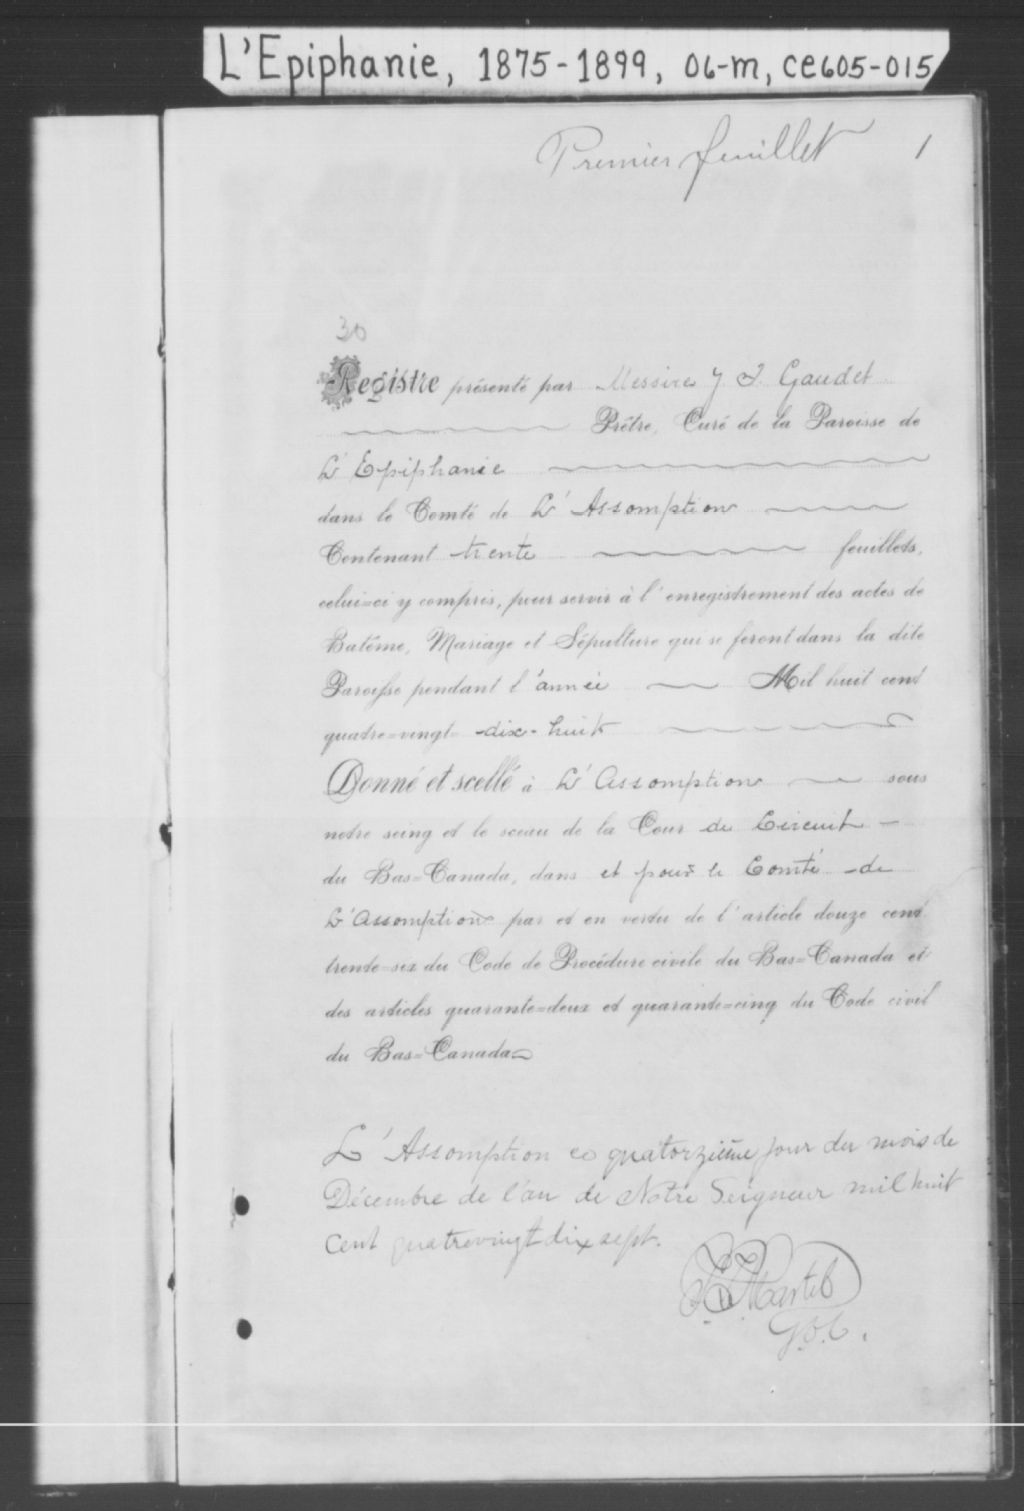 L'Epiphanie, 1875-1899, 06-m, ce605-015
Premier feuillet 1
30
Registre présenté par Messire J. Gaudet
Prêtre, Curé de la Paroisse de
L'Epiphanie
dans le Comté de L'Assomption
Contenant trente feuillets,
celui=ci y compris, pour servir à l'enregistrement des actes de
Batême, Mariage et Sépulture qui se feront dans la dite
Paroisse pendant l'année Mil huit cent
quatre=vingt-dix-huit
Donné et scellé à L'Assomption sous
notre seing et le sceau de la Cour de Circuit
du Bas=Canada, dans et pour le Comté de
L'Assomption par et en vertu de l'article douze cent
trente=six du Code de Procédure civile du Bas=Canada et
des articles quarante=deux et quarante=cinq du Code civil
du Bas=Canada
L'Assomption ce quatorzième jour du mois de
Décembre de l'an de Notre Seigneur mil huit
cent quatrevingt dix sept.
Martel